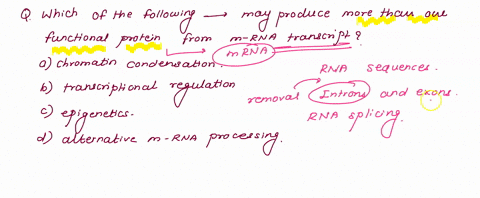 Q. Which of the following → may produce more than one
functional protein from m-RNA transcript?
mRNA
a) chromatin condensation.
RNA sequences.
b) transcriptional regulation
removal Introns and exons.
c) epigenetics.
RNA splicing.
d) alternative m-RNA processing.